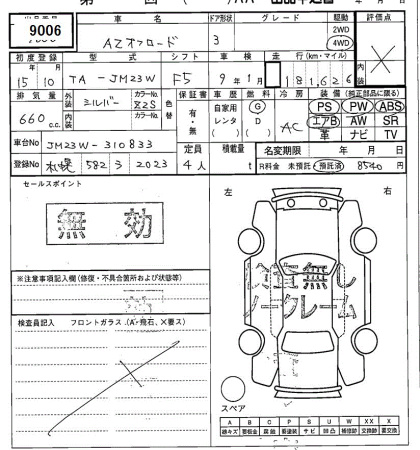 第 回 AA 出品申込書 年 月 日
出品番号 9006
車名 AZオフロード ドア形状 3 グレード 駆動 2WD 4WD 評価点 X
初度登録 型式 シフト 車検 走行(km・マイル) 内装
15年 10月 TA-JM23W F5 9年 1月 181,626
排気量 外装 シルバー カラーNo. Z2S 色替 保証書 車歴 燃料 冷房 装備(純正部品に限る)
660c.c. 内装 カラーNo. 有・無 自家用 レンタ G D AC PS PW ABS
エアB AW SR
革 ナビ TV
車台No JM23W-310833 定員 積載量 名変期限 年 月 日
登録No 札幌 582 る 2023 4人 t R料金 未預託・預託済 8540円
セールスポイント
無効
左 右
※注意事項記入欄(修復・不具合箇所および状態等)
検査員記入 フロントガラス(A・飛石、X要ス)
無し
ノークレーム
スペア
A B C P S U W X XX
線キズ 要板金 腐蝕 要塗装 サビ 凹凸 補修跡 交換跡 要交換